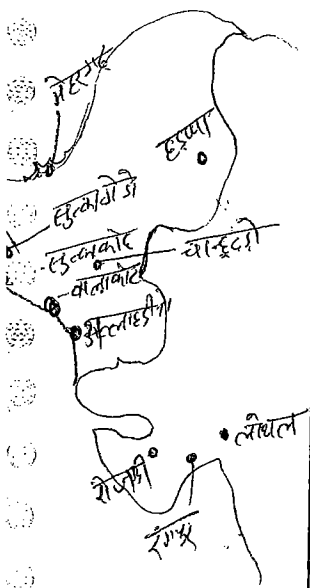 मेहरगढ़
हड़प्पा
सुत्कागेंडो
सुत्काकोह
चान्हूदड़ो
बालाकोट
अल्लाहदीनो
लोथल
रोजदी
रंगपुर